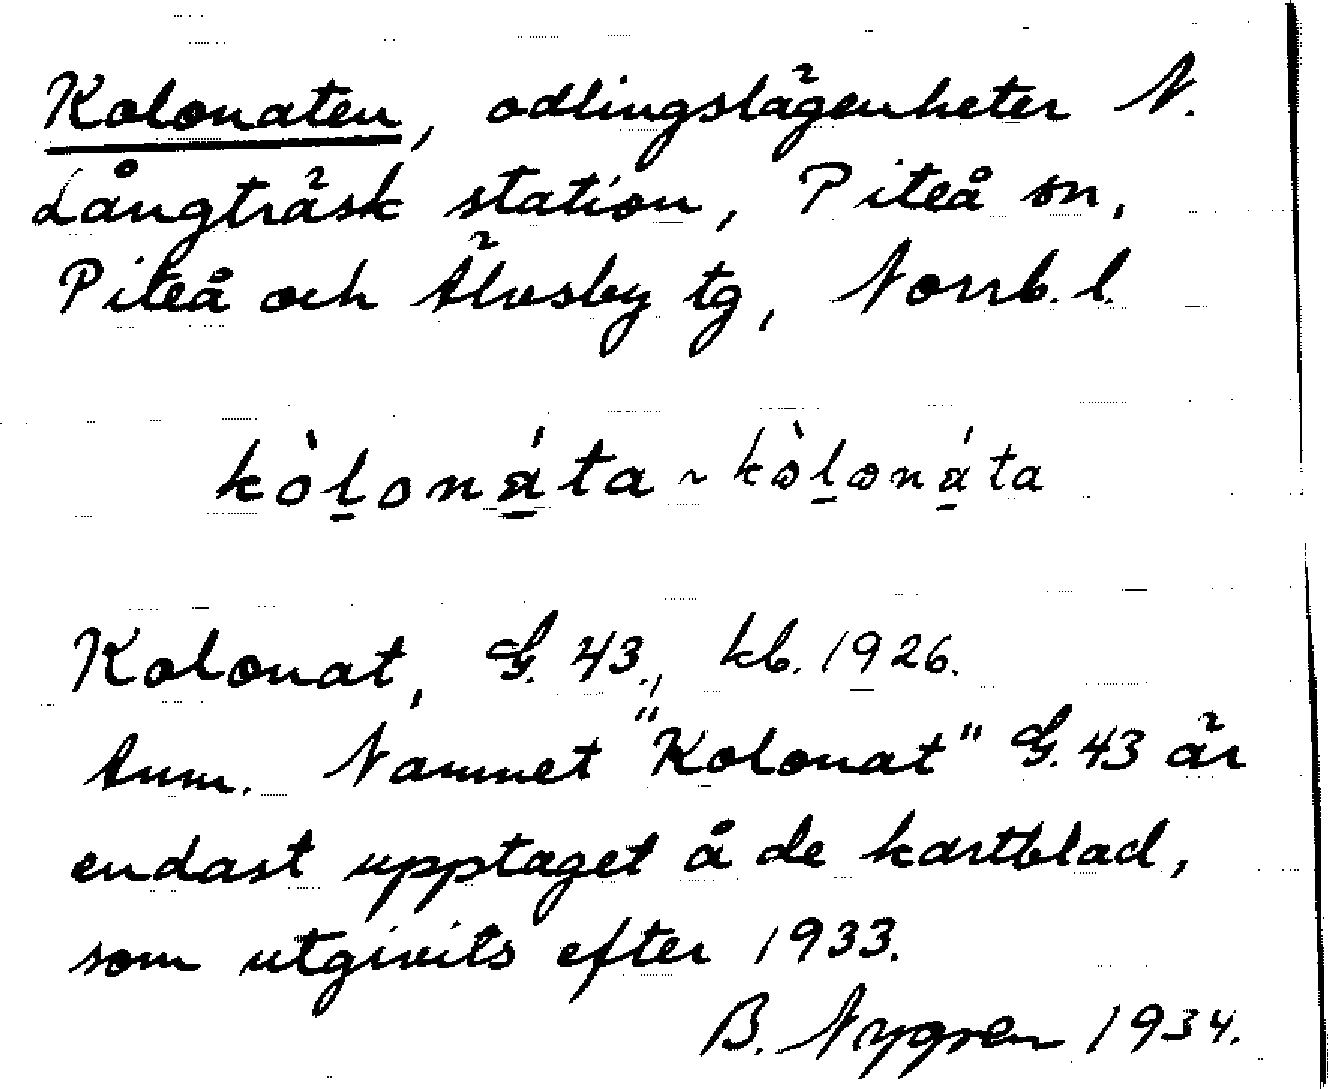 Kolonaten, odlingslägenheter N.
Långträsk station, Piteå sn,
Piteå och Älvsby tg, Norrb. l.
kòlonáta ~ kòlonáta
Kolonat, G. 43., kb. 1926.
Anm. Namnet "Kolonat" G. 43 är
endast upptaget å de kartblad,
som utgivits efter 1933.
B. Nygren 1934.